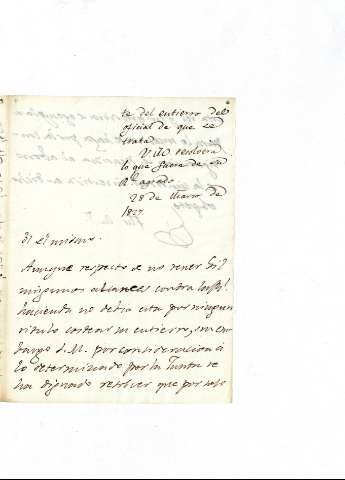 te del entierro del
oficial de que se
trata.
V. M. resolverá
lo que fuere de su
Rl. agrado.
28 de Marzo de
1827.
31 El mismo.
Aunque respecto de no tener
ningunos alcances contra la Rl.
hacienda no debia esta por ningun
titulo costear su entierro, sin em
bargo S. M. por consideracion á
lo determinado por la Junta se
ha dignado resolver que por solo